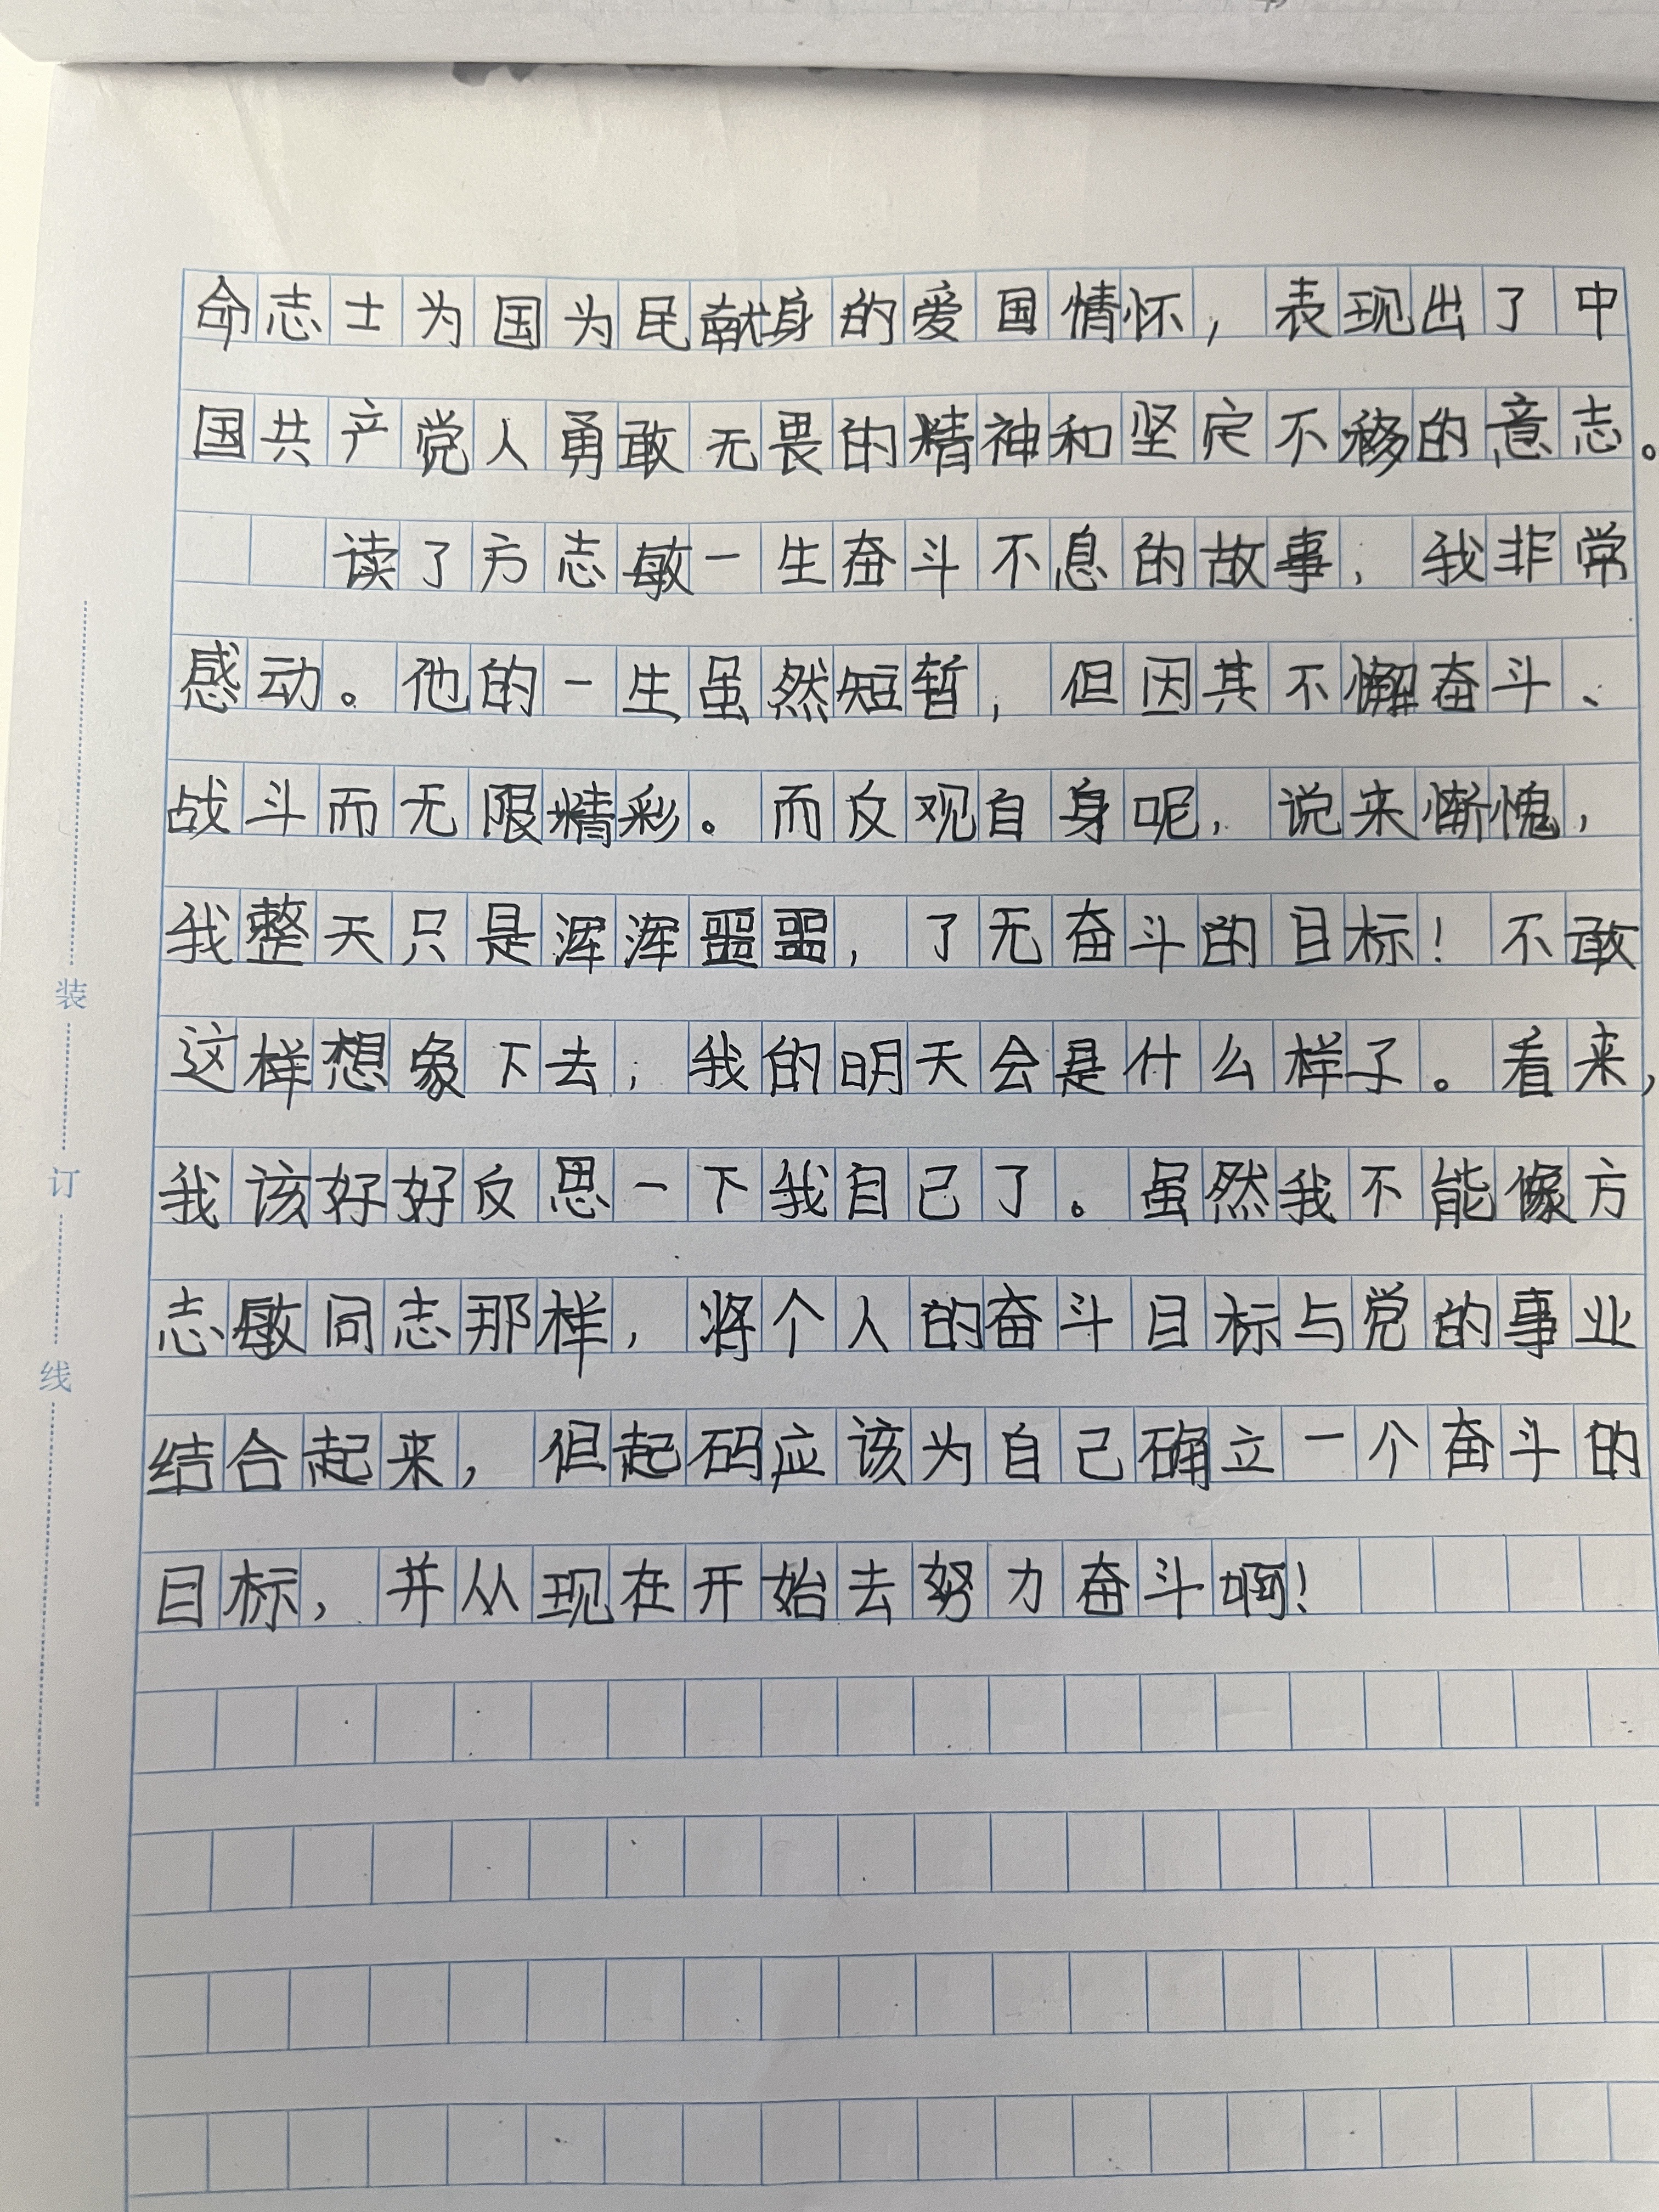 命志士为国为民献身的爱国情怀，表现出了中
国共产党人勇敢无畏的精神和坚定不移的意志。
读了方志敏一生奋斗不息的故事，我非常
感动。他的一生虽然短暂，但因其不懈奋斗、
战斗而无限精彩。而反观自身呢，说来惭愧，
我整天只是浑浑噩噩，了无奋斗的目标！不敢
这样想象下去，我的明天会是什么样子。看来，
我该好好反思一下我自己了。虽然我不能像方
志敏同志那样，将个人的奋斗目标与党的事业
结合起来，但起码应该为自己确立一个奋斗的
目标，并从现在开始去努力奋斗啊！
装
订
线